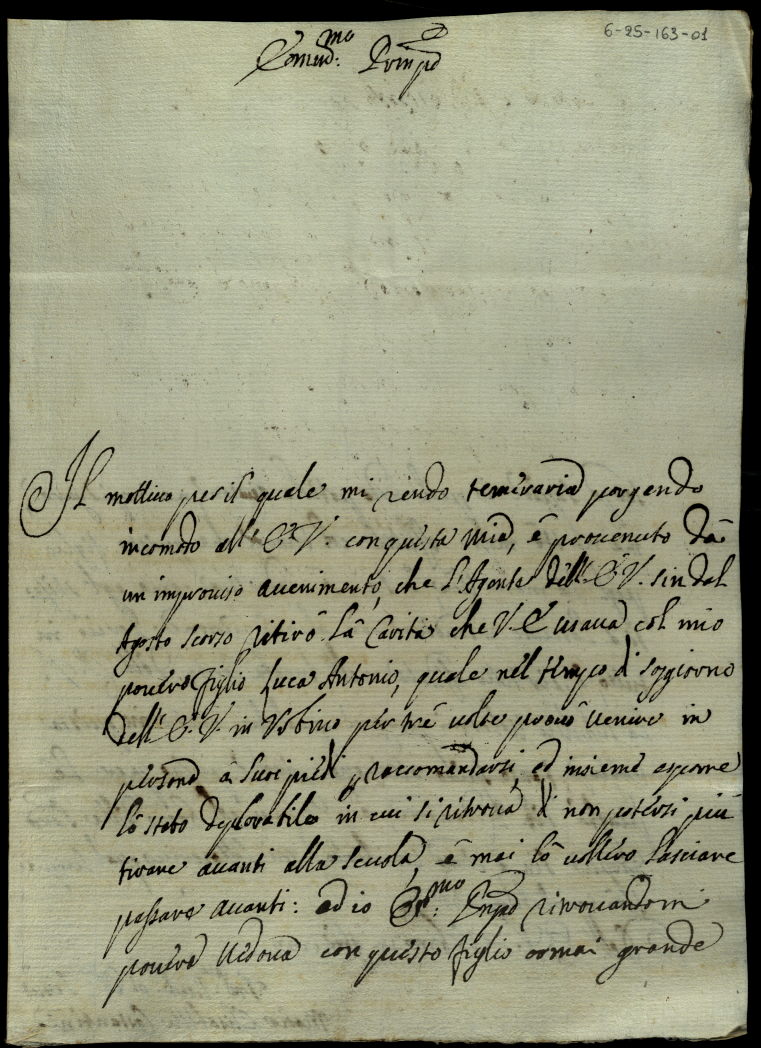 6-25-163-01
Emin.mo Prinpe
Il mottivo per il quale mi rendo temeraria porgendo
incomodo all' E. V. con questa mia, è provenuto dà
un improviso avenimento, che l'Agente dell' E. V. sin dal
Agosto scorso ritirò la Carità che V. E. usava col mio
povero figlio Luca Antonio, quale nel tempo di soggiorno
dell' E. V. in Urbino per trè volte provò venire in
persona à suoi piedi p raccomandarsi, ed insieme esporre
lo stato deplorabile in cui si ritrova di non potersi più
tirare avanti alla scuola, è mai lo vollero lasciare
passare avanti: ed io Em.mo Pnpe ritrovandomi
povera Vedova con questo figlio ormai grande